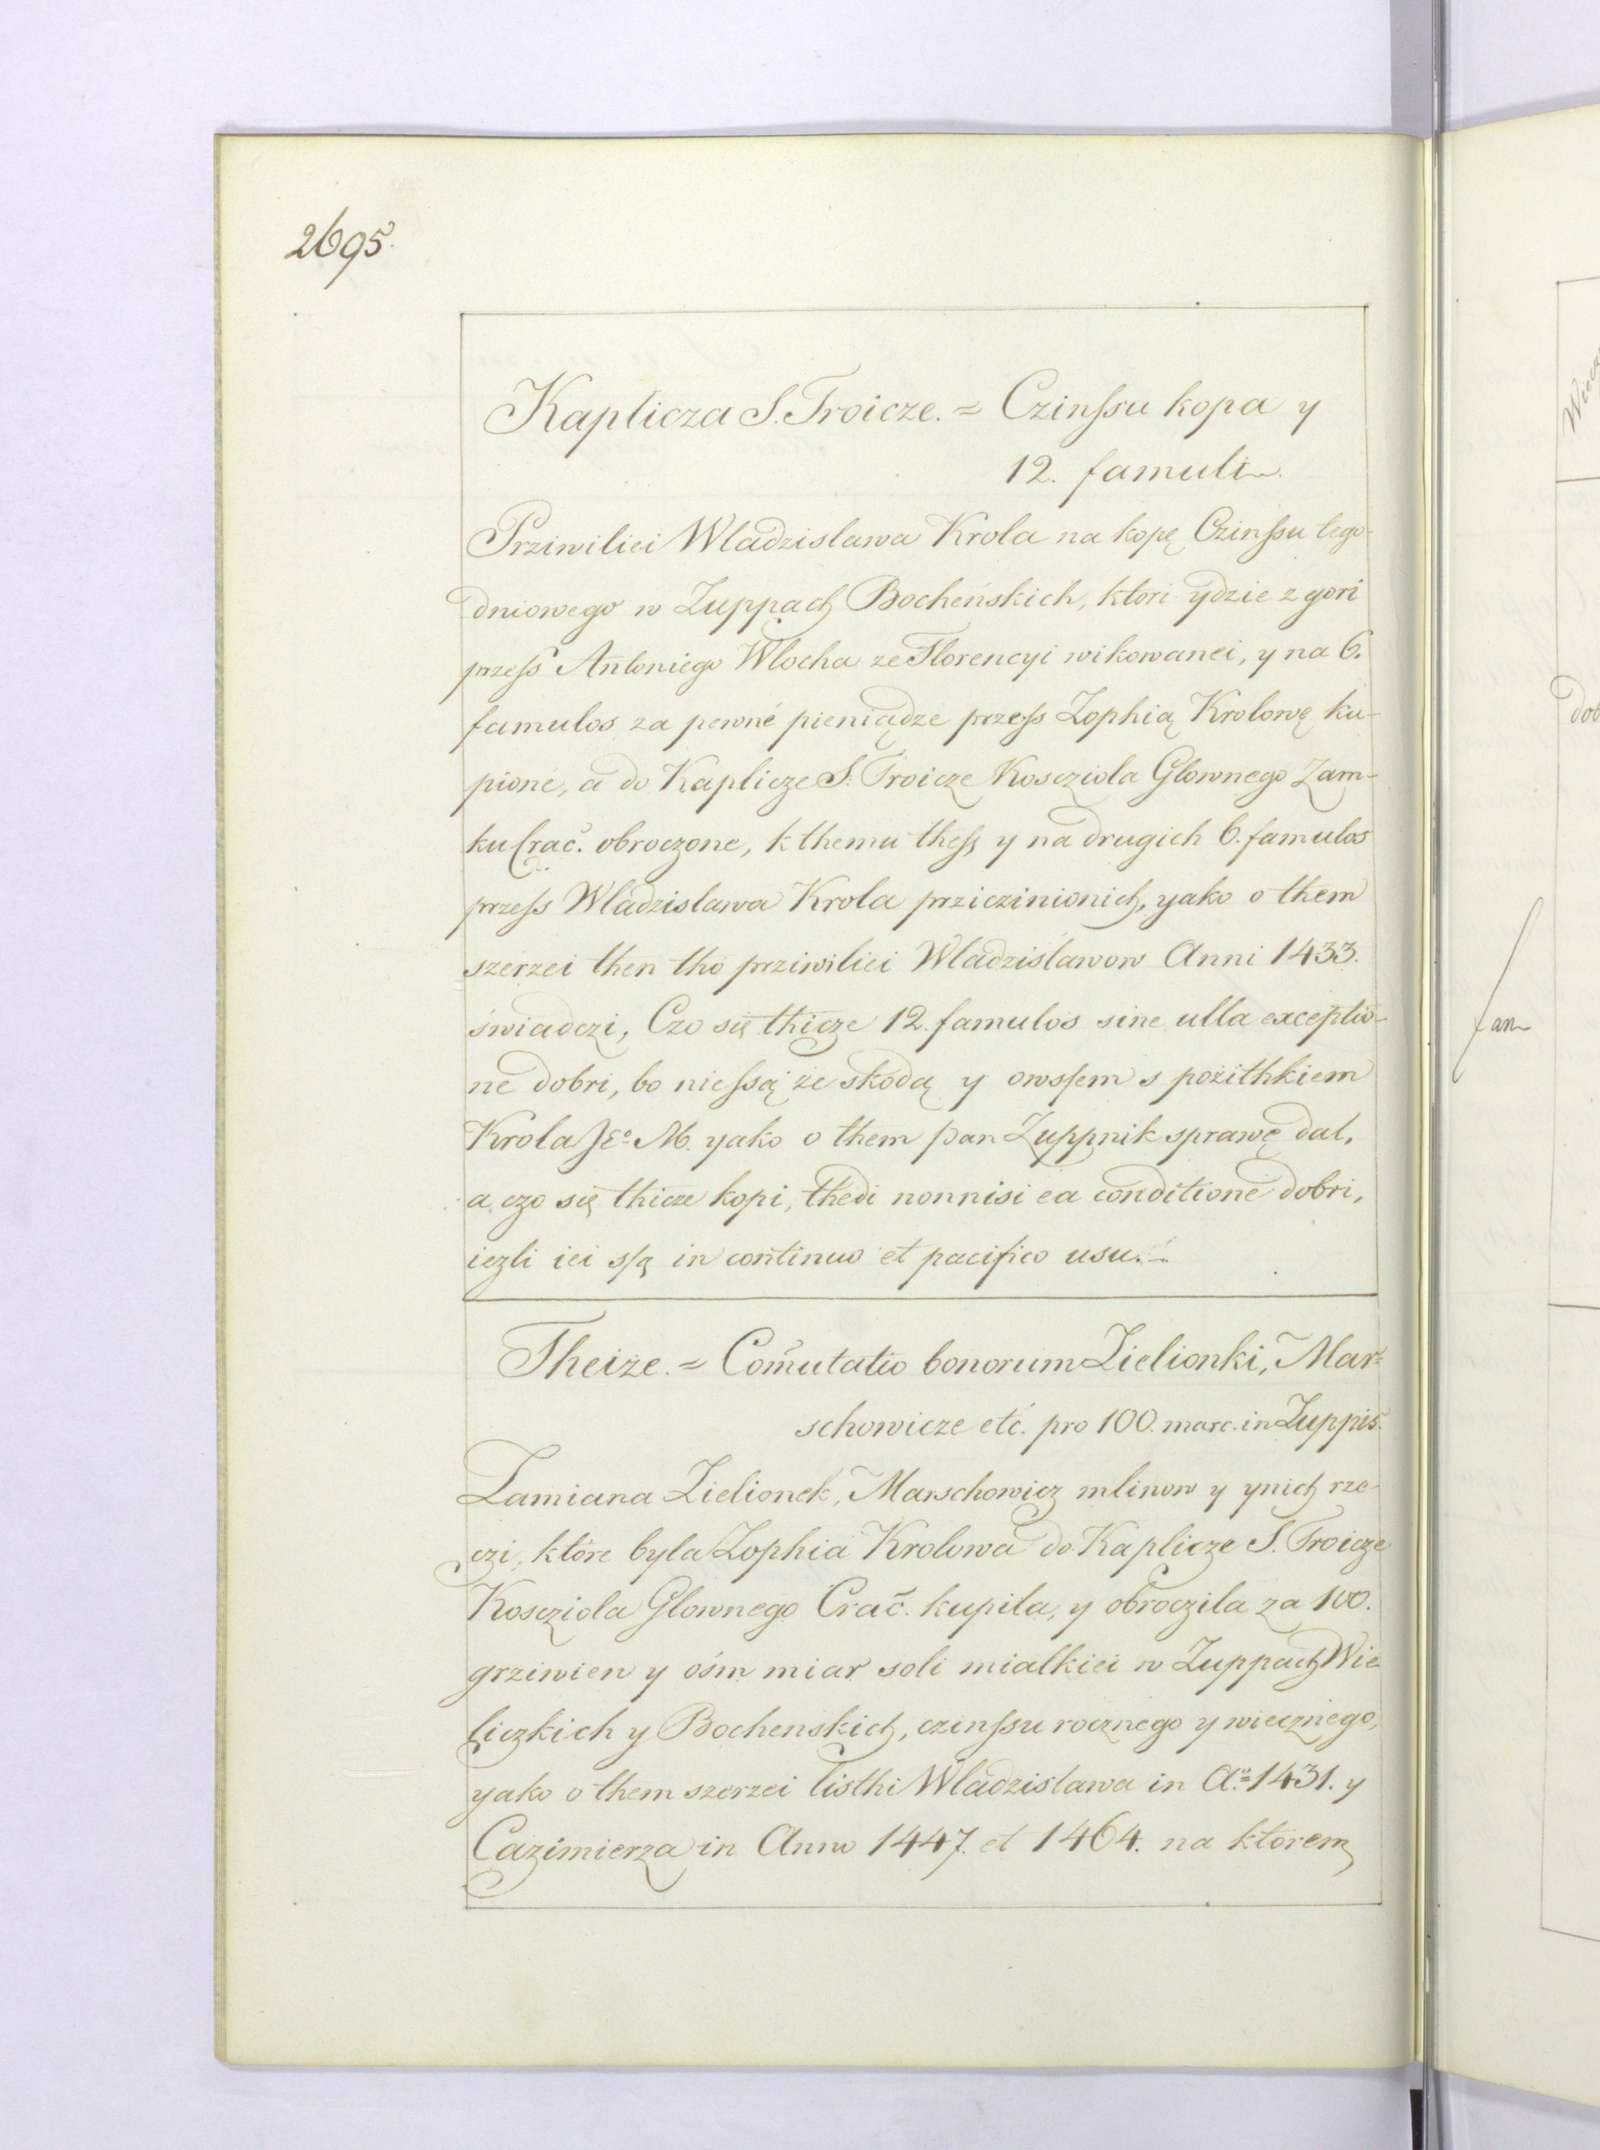 2695.
Kaplicza S. Troicze. = Czinſsu kopa y
12. famuli.
Prziwiliei Wladzislawa Krola na kopę Czinſsu tego-
dniowego w Zuppach Bocheńskich, ktori ydzie z gori
przeſs Antoniego Wlocha ze Florencyi wikowanei, y na 6.
famulos za pewné pieniądze przeſs Zophią Krolowę ku-
pioné, a do Kaplicze S. Troicze Koscziola Glownego Zam-
ku Crac̃. obroczone, k themu theſs y na drugich 6. famulos
przeſs Wladzislawa Krola prziczinionich, yako o them
szerzei then tho prziwiliei Wladzislawow Anni 1433.
świadczi, Czo się thicze 12. famulos sine ulla exceptio-
ne dobri, bo nieſsą ze skodą y owsſem s pożithkiem
Krola Jeº M. yako o them pan Zuppnik sprawę dal,
a czo się thicze kopi, thedi nonnisi ea conditione dobri,
iezli iei sſą in continuo et pacifico usu.
Theiże. = Com̃utatio bonorum Zielionki, Mar-
schowicze etć. pro 100. marc. in Zuppis.
Zamiana Zielionek, Marschowicz mlinow y ynich rze-
czi, któré byla Zophia Krolowa do Kaplicze S. Troicze
Koscziola Glownego Crac̃. kupila, y obroczila za 100.
grziwien y ośm miar soli mialkiei w Zuppach Wie-
liczkich y Bochenskich, czinſsu rocznego y wiecznego,
yako o them szerzei listhi Wladzislawa in Aº 1431. y
Cazimierza in Anno 1447. et 1464. na ktorem
Wiecz
dob
an